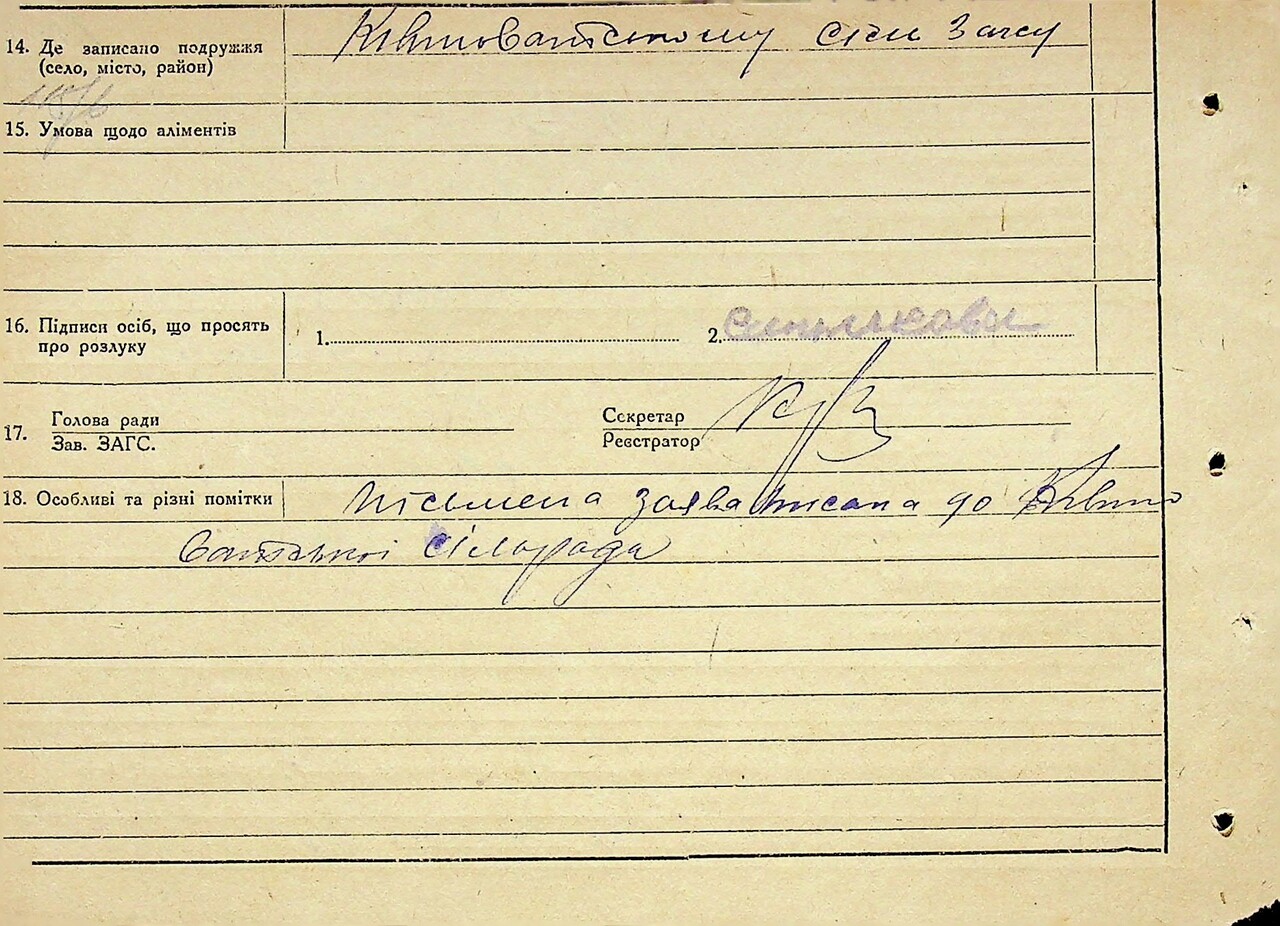 14. Де записано подружжя
(село, місто, район)
сіль Загсу
15. Умова щодо аліментів
16. Підписи осіб, що просять
про розлуку
1.
2.
17. Голова ради
Зав. ЗАГС.
Секретар
Реєстратор
18. Особливі та різні помітки
письмена заява писана до
сілорада